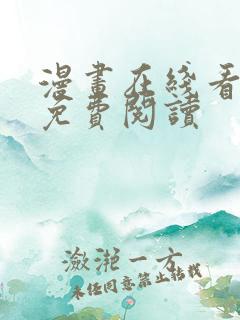 漫畫在綫看
免費閱讀
瀲滟一方
未经同意禁止转载